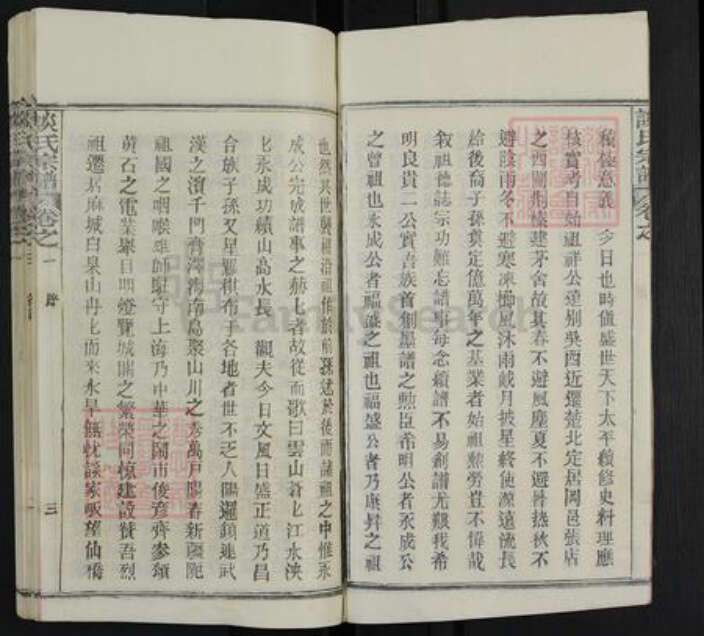 談氏宗譜 卷之一
積極意義 今日也時值盛世天下太平續修史料理應
核實考自始祖祥公遠别吳西近遷楚北定居岡邑張店
之西關荆榛建茅舍故其春不避風塵夏不避暑熱秋不
避陰雨冬不避寒凍櫛風沐雨戴月披星終使源遠流長
給後裔子孫奠定億萬年之基業者始祖勲勞豈不偉哉
敘祖德誌宗功難忘譜事每念續譜不易創譜尤艱我希
明良貴一公實吾族首創墨譜之勲臣希明公者永成公
之曾祖也永成公者福盛之祖也福盛公者乃康舜之祖
也然其世襲祖沿祖作於前孫述於後而諸祖之中惟永
成公完成譜事之赫匕者故從而歌曰雲山蒼匕江水泱
匕永成功績山高水長 觀夫今日文風日盛正道乃昌
合族子孫又星羅棋布于各地者世不乏人
漢之濱千門 海南島聚山川之秀萬戸陽春新疆
祖國之咽喉雄師駐守上海乃中華之鬧市俊彥齊參頌
黄石之電業舉目明燈覽城關之繁榮同懷建設贊吾烈
祖遷居麻城白臬山冉匕而來水旱無忧談家畈望仙橋
談氏宗譜 卷之一
三